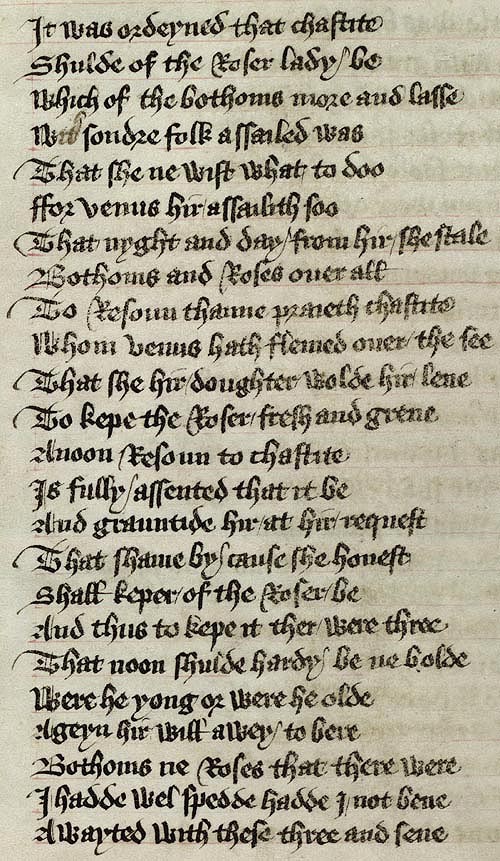 It was ordeyned that chastite
Shulde of the Roser lady be
Which of the bothoms more and lasse
With sondre folk assailed was
That she ne wist what to doo
ffor venus hir assailith soo
That nyght and day from hir she stale
Bothoms and Roses ouer all
To Resoun thanne praieth chastite
Whom venus hath flemed ouer the see
That she hir doughter wolde hir lene
To kepe the Roser fresh and grene
Anoon Resoun to chastite
Is fully assented that it be
And grauntide hir at hir request
That shame by cause she honest
Shall keper of the Roser be
And thus to kepe it ther were three
That noon shulde hardy be ne bolde
Were he yong or were he olde
Ageyn hir will awey to bere
Bothoms ne Roses that there were
I hadde wel spedde hadde I not bene
Awayted with these three and sene